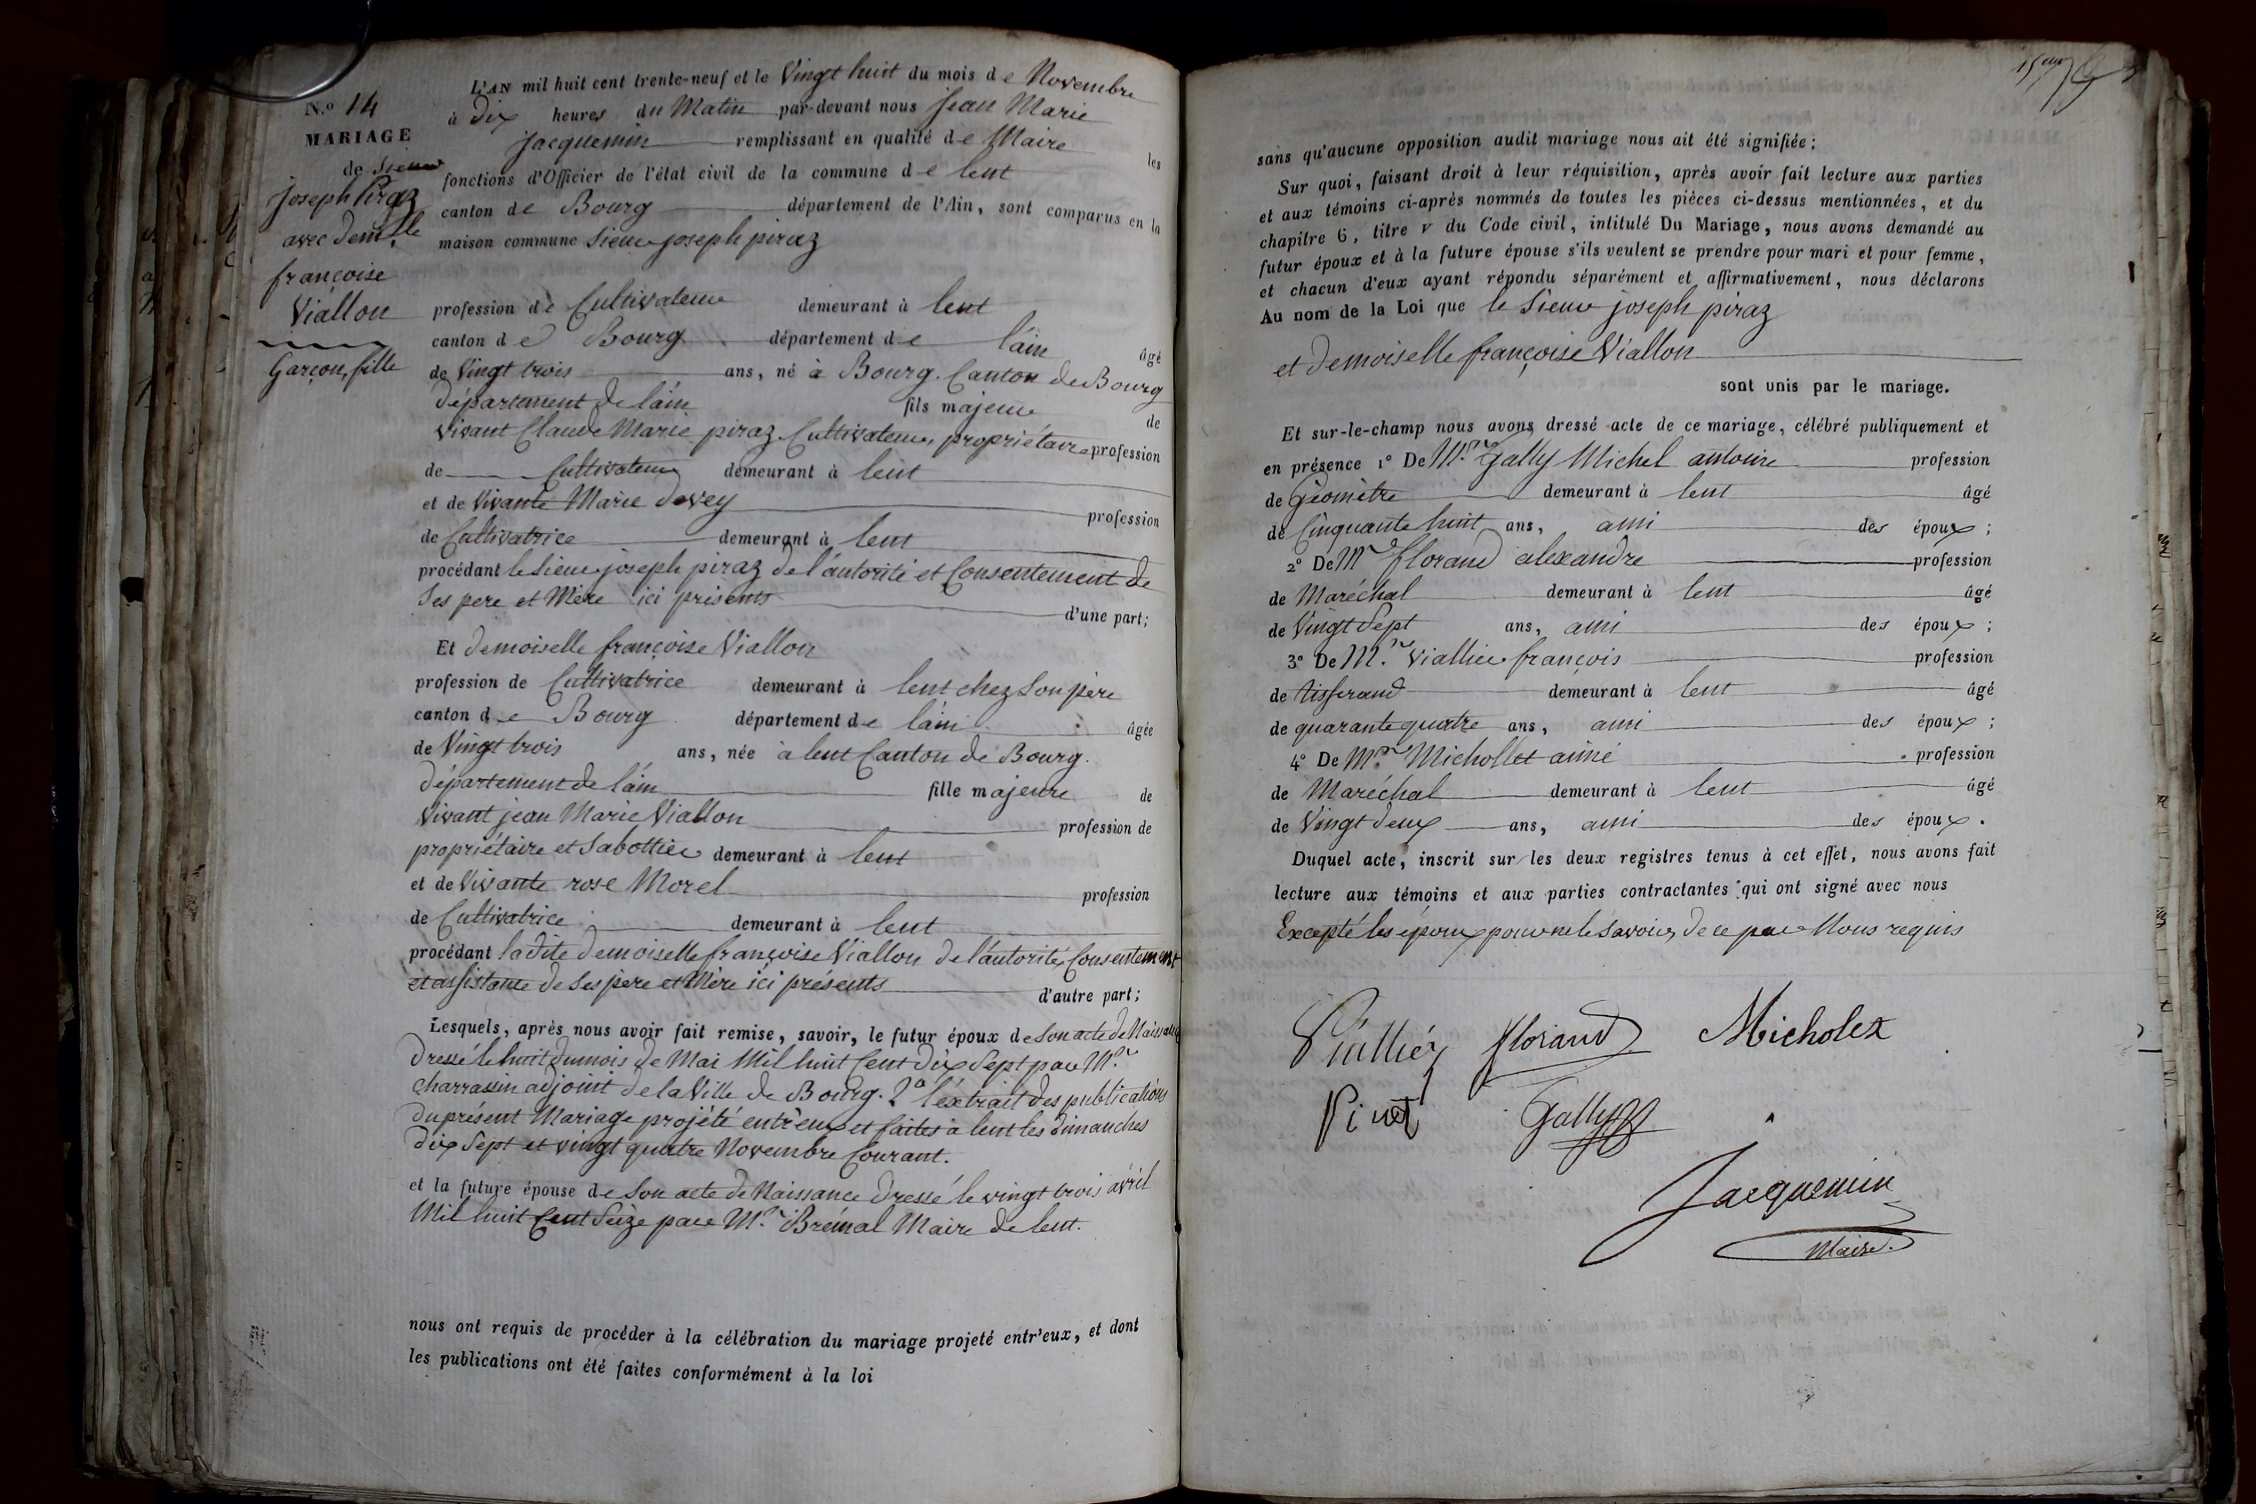 N.º 14
MARIAGE
de Sieur
joseph Piraz
avec dem.lle
françoise
Viallon
Garçon, fille
L'AN mil huit cent trente-neuf et le Vingt huit du mois de Novembre
à Dix heures du Matin par-devant nous Jean Marie
jacquemin remplissant en qualité de Maire les
fonctions d'Officier de l'état civil de la commune de lent
canton de Bourg département de l'Ain, sont comparus en la
maison commune Sieur joseph piraz
profession de Cultivateur demeurant à lent
canton de Bourg département de l'ain âgé
de Vingt trois ans, né à Bourg. Canton de Bourg
département de l'ain fils majeur de
vivant Claude Marie piraz Cultivateur, propriétaire profession
de Cultivateur demeurant à lent
et de Vivante Marie Devey profession
de Cultivatrice demeurant à lent
procédant le Sieur joseph piraz de l'autorité et Consentement de
Ses pere et Mère ici présents d'une part;
Et demoiselle françoise Viallon
profession de Cultivatrice demeurant à lent chez Son père
canton de Bourg département de l'ain âgée
de Vingt trois ans, née à lent Canton de Bourg.
département de l'ain fille majeure de
Vivant jean Marie Viallon profession de
propriétaire et Sabottier demeurant à lent
et de Vivante rose Morel profession
de Cultivatrice demeurant à lent
procédant ladite demoiselle françoise Viallon de l'autorité, Consentement
et assistante de Ses père et Mère ici présents d'autre part;
Lesquels, après nous avoir fait remise, savoir, le futur époux de Son acte de Naissance
Dressé le huit du mois de Mai Mil huit Cent Dix Sept par M.r
Charrassin adjoint de la Ville de Bourg. 2º l'extrait des publications
du présent Mariage projété entr'eux et faites à lent les dimanches
Dix Sept et vingt quatre Novembre Courant.
et la future épouse de Son acte de Naissance Dressé le vingt trois avril
Mil huit Cent Seize par M.r Brémal Maire de lent.
nous ont requis de procéder à la célébration du mariage projeté entr'eux, et dont
les publications ont été faites conformément à la loi
sans qu'aucune opposition audit mariage nous ait été signifiée;
Sur quoi, faisant droit à leur réquisition, après avoir fait lecture aux parties
et aux témoins ci-après nommés de toutes les pièces ci-dessus mentionnées, et du
chapitre 6, titre v du Code civil, intitulé Du Mariage, nous avons demandé au
futur époux et à la future épouse s'ils veulent se prendre pour mari et pour femme,
et chacun d'eux ayant répondu séparément et affirmativement, nous déclarons
Au nom de la Loi que le Sieur joseph piraz
et demoiselle françoise Viallon
sont unis par le mariage.
Et sur-le-champ nous avons dressé acte de ce mariage, célébré publiquement et
en présence 1º De M.r Gally Michel antoine profession
de Géomètre demeurant à lent âgé
de Cinquante huit ans, ami des époux;
2º De M.r florand alexandre profession
de Maréchal demeurant à lent âgé
de Vingt Sept ans, ami des époux;
3º De M.r Viallier françois profession
de tisserand demeurant à lent âgé
de quarante quatre ans, ami des époux;
4º De M.r Michollet aimé profession
de Maréchal demeurant à lent âgé
de Vingt deux ans, ami des époux.
Duquel acte, inscrit sur les deux registres tenus à cet effet, nous avons fait
lecture aux témoins et aux parties contractantes qui ont signé avec nous
Excepté les époux pour ne le Savoir, de ce par Nous requis
Viallier florand Micholet
Gally
Jacquemin
Maire.